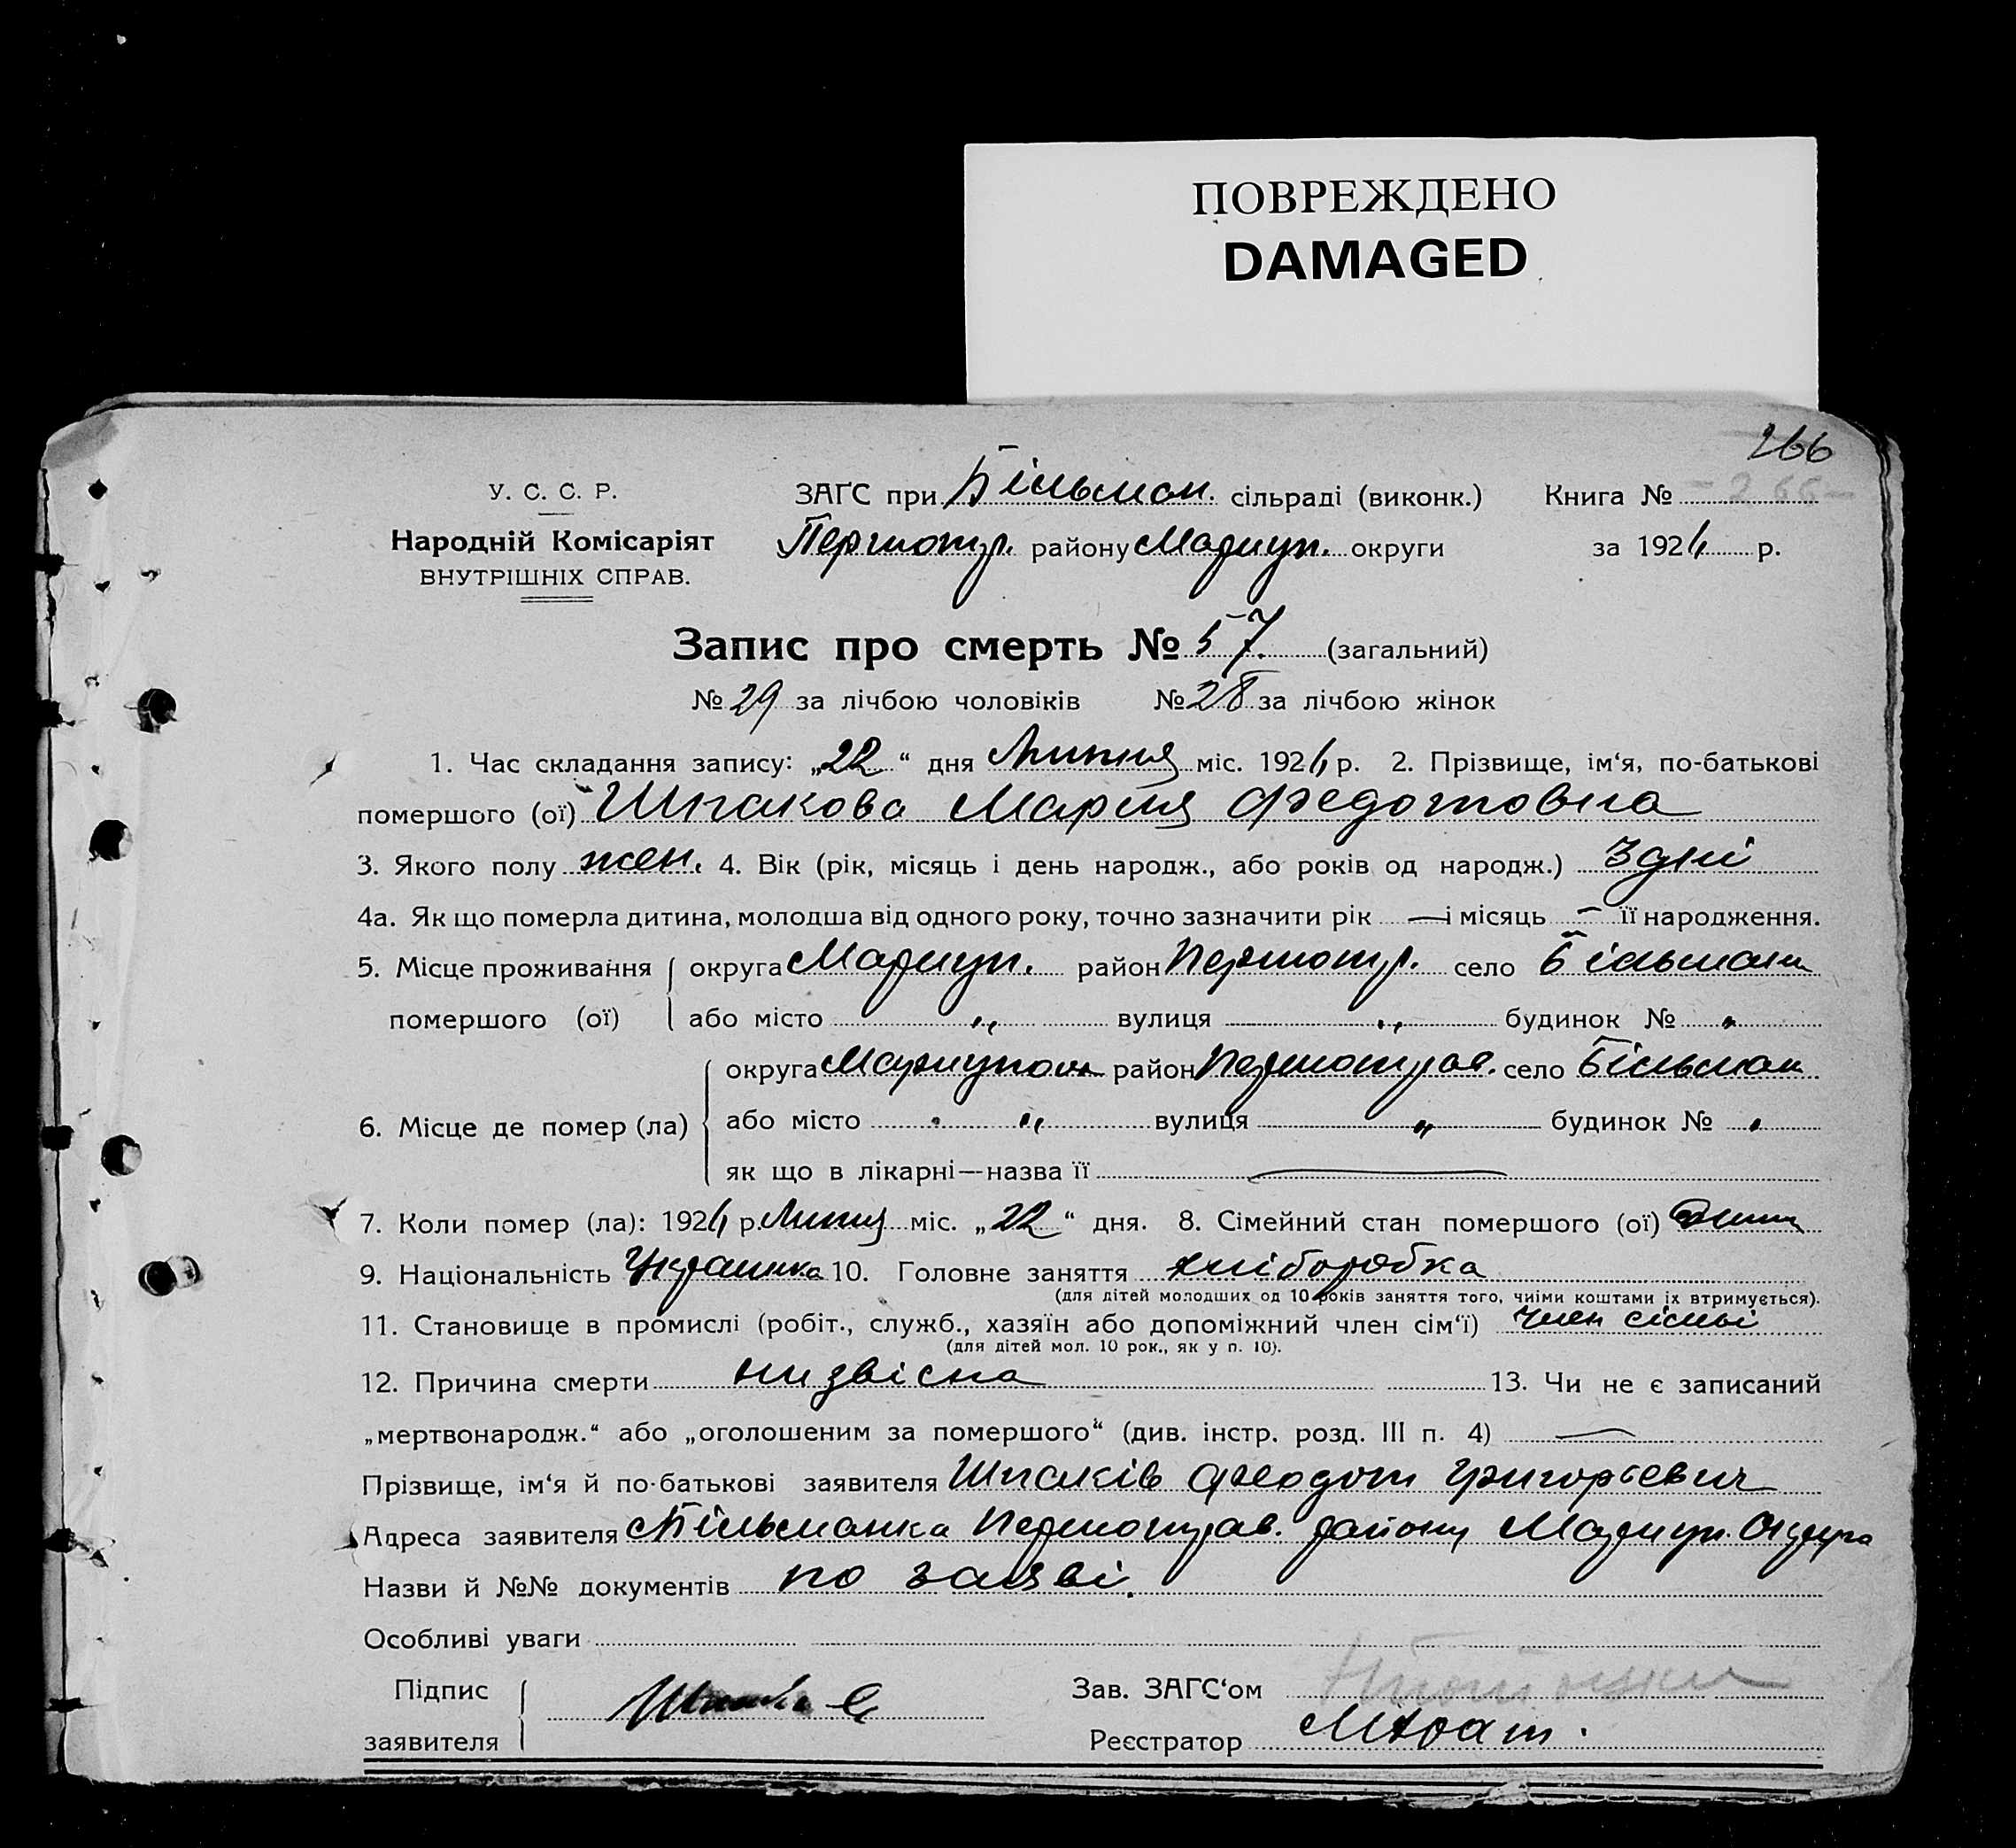 ПОВРЕЖДЕНО
DAMAGED
266
У. С. С. Р.
ЗАГС при Більман. сільраді (виконк.) Книга № - 266 -
Народній Комісаріят
Першотр. району Мариуп. округи за 1924 р.
ВНУТРІШНІХ СПРАВ.
Запис про смерть № 57. (загальний)
№ 29 за лічбою чоловіків № 28 за лічбою жінок
1. Час складання запису: „22“ дня Липня міс. 1924 р. 2. Прізвище, ім‘я, по-батькові
помершого (ої) Шпакова Мария Федотовна
3. Якого полу жен. 4. Вік (рік, місяць і день народж., або років од народж.) 3 дні
4а. Як що померла дитина, молодша від одного року, точно зазначити рік — і місяць — її народження.
5. Місце проживання округа Мариуп. район Першотр. село Більманк
помершого (ої) або місто „ вулиця „ будинок № „
округа Мариупол район Першотрав. село Більман
6. Місце де помер (ла) або місто „ „ вулиця „ будинок № „
як що в лікарні—назва її —
7. Коли помер (ла): 1924 р. Липня міс. „22“ дня. 8. Сімейний стан помершого (ої)
9. Національність Украинка 10. Головне заняття хліборобка
(для дітей молодших од 10 років заняття того, чиїми коштами їх втримується).
11. Становище в промислі (робіт., служб., хазяїн або допоміжний член сім‘ї) член сімьі
(для дітей мол. 10 рок., як у п. 10).
12. Причина смерти низвісна 13. Чи не є записаний
„мертвонародж.“ або „оголошеним за помершого“ (див. інстр. розд. III п. 4) —
Прізвище, ім‘я й по-батькові заявителя Шпаків Феодот Григорьевич
Адреса заявителя с Більманка Першотрав. району Мариуп. Округа
Назви й №№ документів по заяві.
Особливі уваги
Підпис
Зав. ЗАГС‘ом
заявителя
Реєстратор